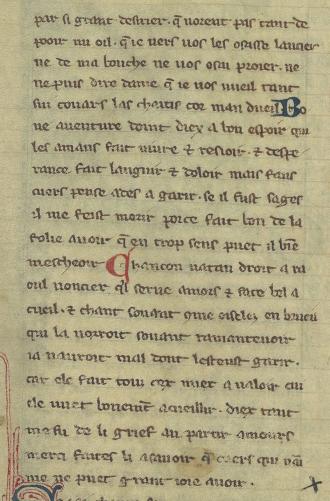 par si grant desirier. q̃ norent pas tant de
pooir mi oil. q̃ ie vers vos les osasse lancier
ne de ma bouche ne vos osai proier. ne
ne puis dire dame q̃ ie vos vueil tant
fui couars las chaitis cor man dueil Bo
ne auenture doint diex a bon espoir qui
les amans fait viure & resioir. & despe
rance fait languir & doloir mais fans
cuers pense ades a garir. se il fust sages
il me feist morir porce fait bon de la
folie auoir q̃ en trop sens puet il biẽ
mescheoir Chancon uatan droit a ra
oul noncier qͥl serue amors & face bel a
cueil. & chant souant cõme oiselez en brueil
qui la uorroit souant ramanteuoir
ia nauroit mal dont lesteust garir.
car ele fait touz cex miex a ualoir cui
ele uuet bonemẽt acueillir. diex tant
me fu de li grief au partir amours
merci faites li asauoir q̃ cuers qui nãi
me ne puet grant ioie auoir.